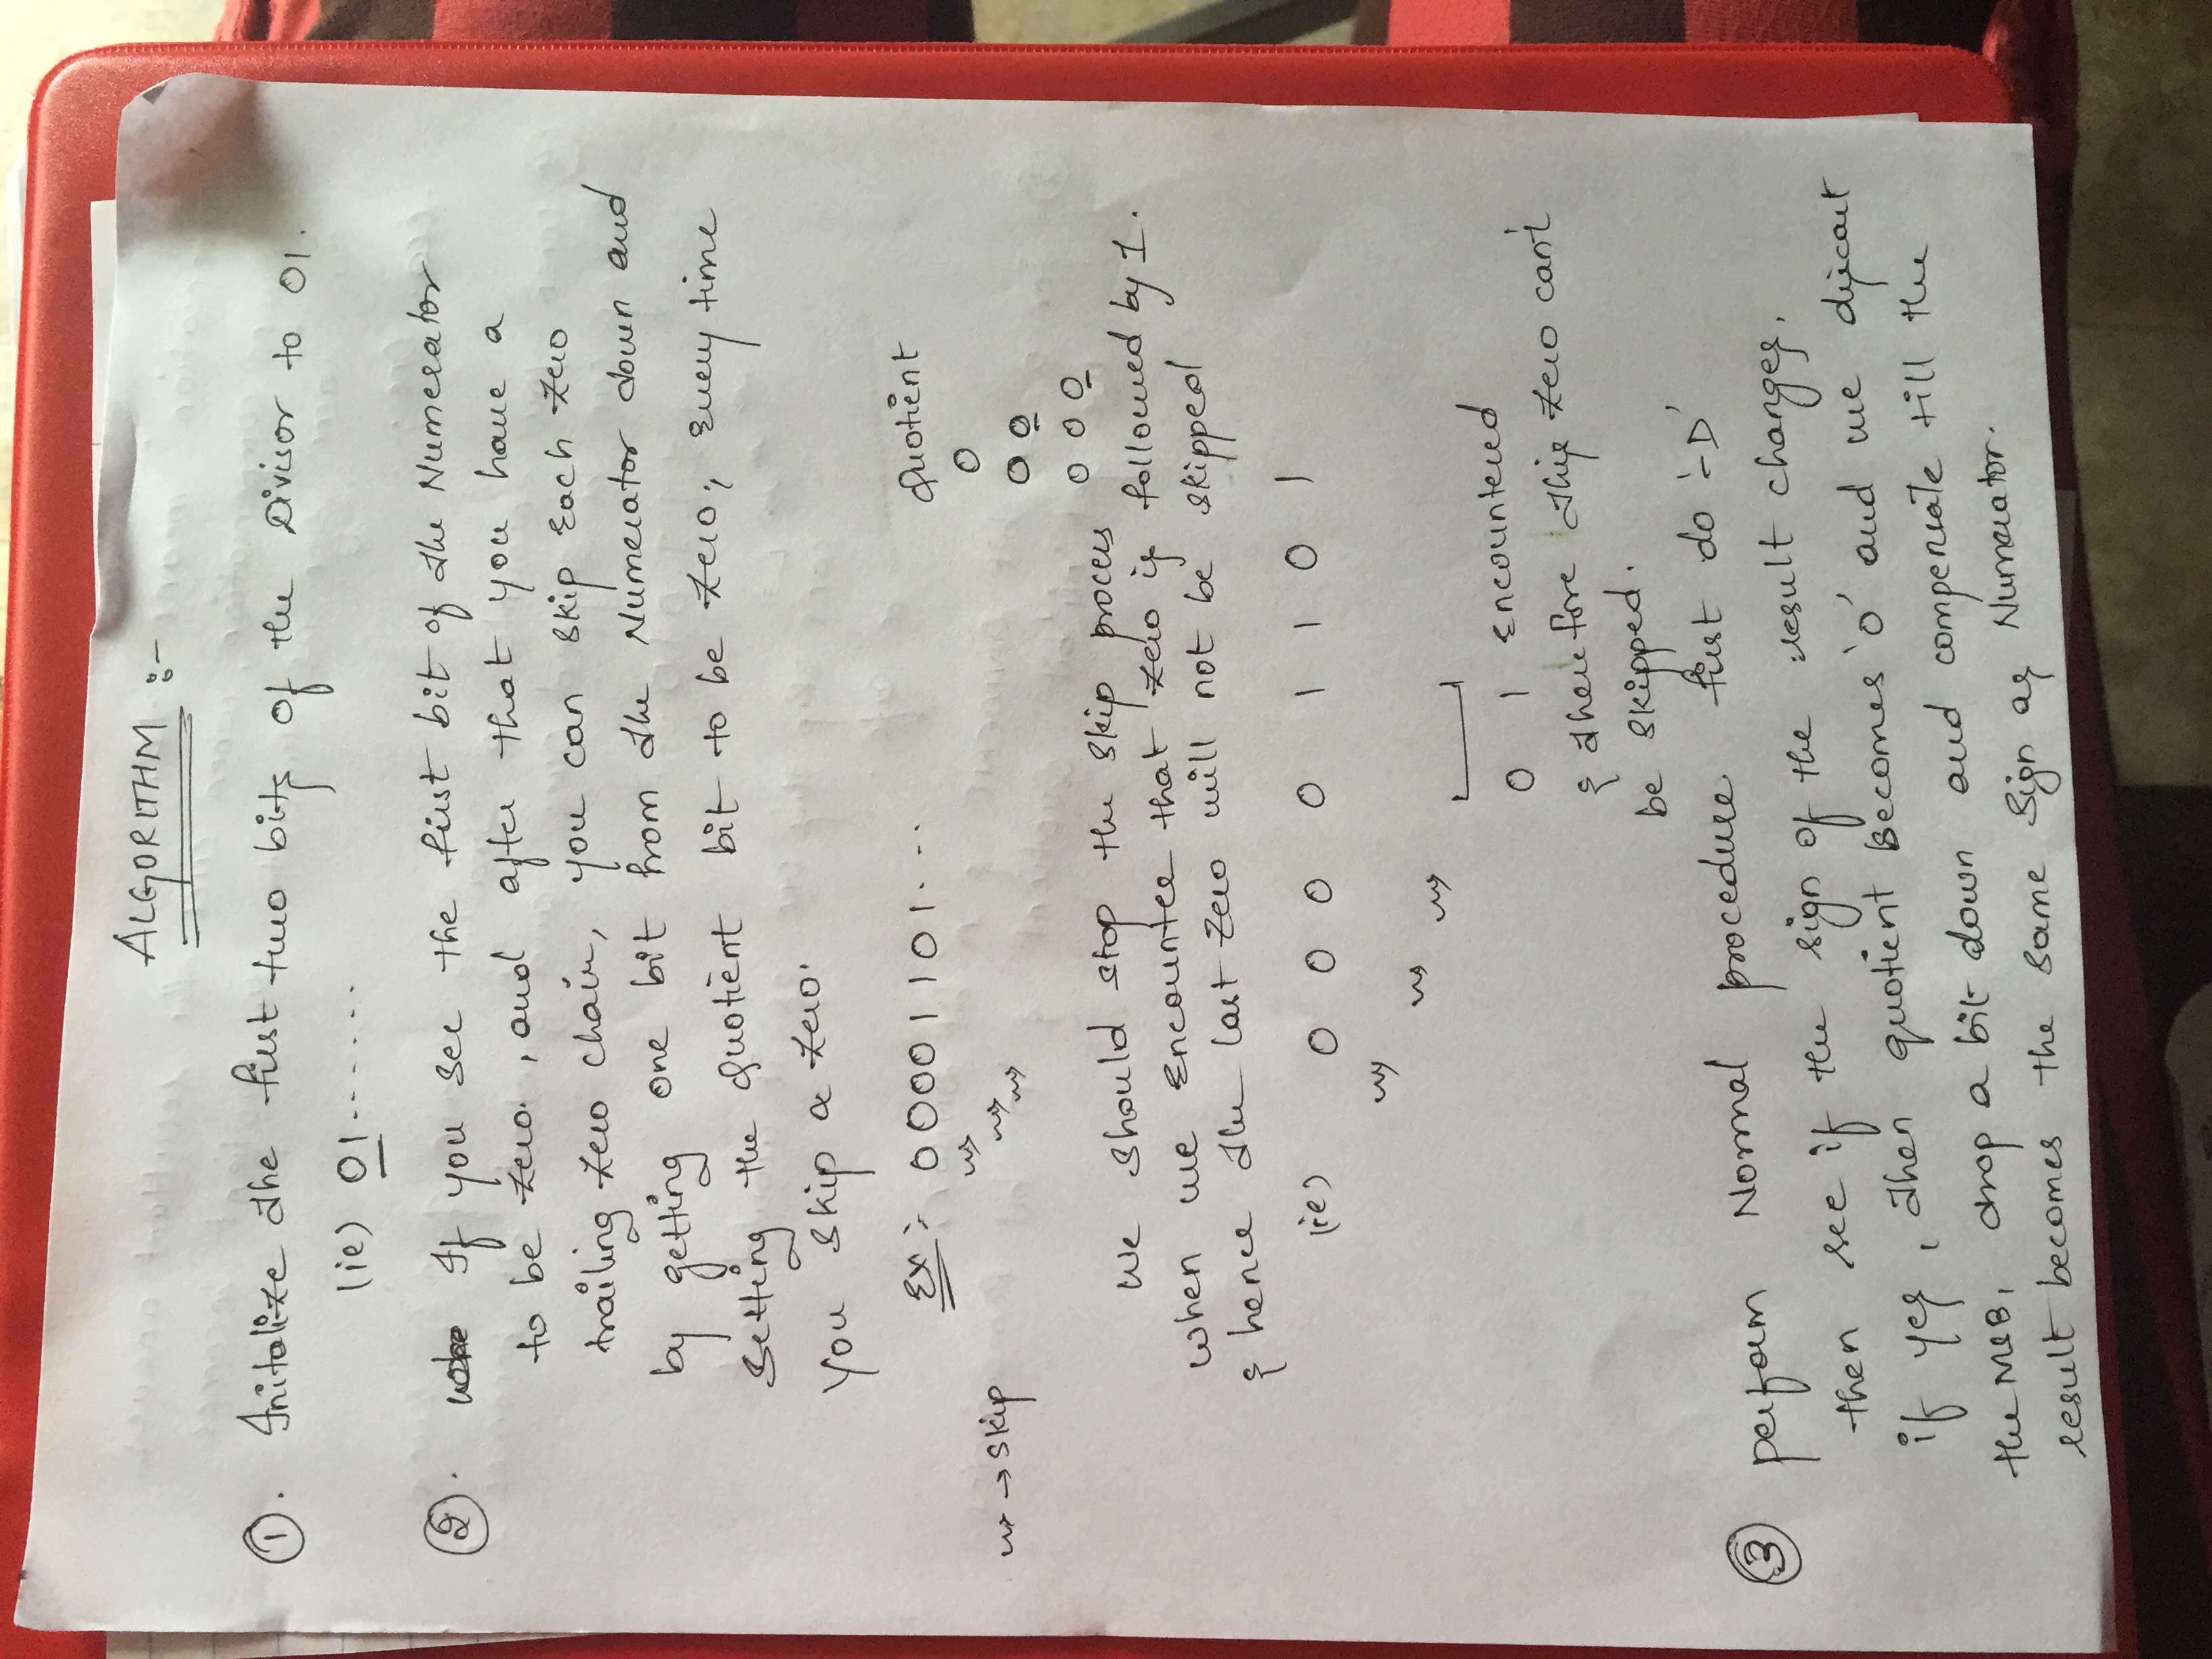 ALGORITHM :-
①. Initalize the first two bits of the Divisor to 01.
(ie) 01.......
②. If you see the first bit of the Numerator
to be zero., and after that you have a
trailing zero chain, you can skip Each zero
by getting one bit from the Numerator down and
Setting the Quotient bit to be zero., Every time
You skip a zero.
Ex:- 00001101... Quotient
0
→ skip
0 0
0 0 0
We should stop the skip process
when we Encounter that zero is followed by 1.
& hence the last zero will not be skipped
(ie) 0 0 0 0 1 1 0 1
0 1 Encountered
& therefore this zero can't
be skipped.
③ perform Normal procedure first do '-D'
then see if the sign of the result changes,
if yes, then quotient Becomes '0' and we discart
the MSB, drop a bit down and compensate till the
result becomes the same sign as Numerator.